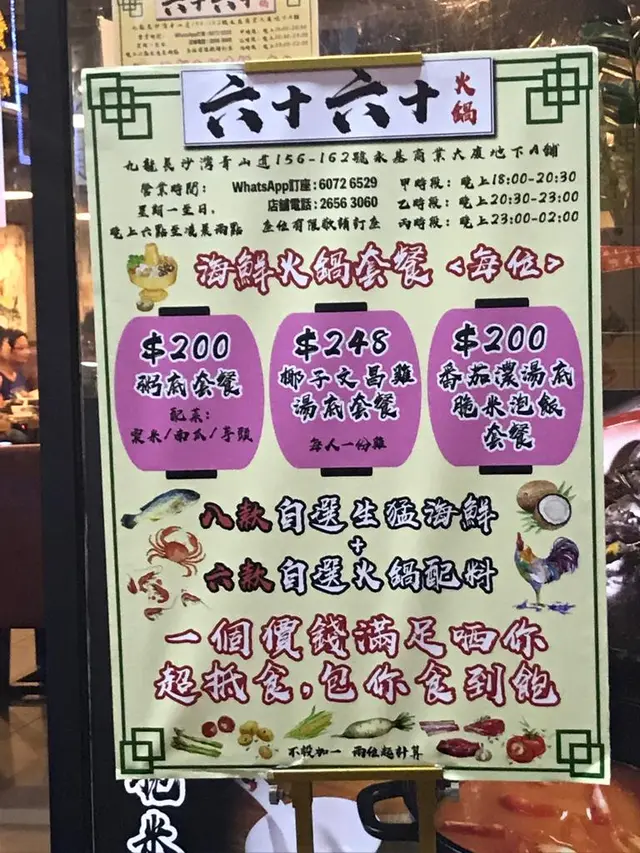 六十六十
火鍋
九龍長沙灣青山道156-162號永基商業大廈地下A鋪
營業時間：
星期一至日，
晚上六點至凌晨兩點
WhatsApp訂座：6072 6529
店舖電話：2656 3060
座位有限敬請訂座
甲時段：晚上18:00-20:30
乙時段：晚上20:30-23:00
丙時段：晚上23:00-02:00
海鮮火鍋套餐<每位>
$200
粥底套餐
配菜：
粟米/南瓜/芋頭
$248
椰子文昌雞
湯底套餐
每人一份雞
$200
番茄濃湯底
脆米泡飯
套餐
八款自選生猛海鮮
+
六款自選火鍋配料
一個價錢滿足晒你
超抵食，包你食到飽
不設加一 兩位起計算
脆米